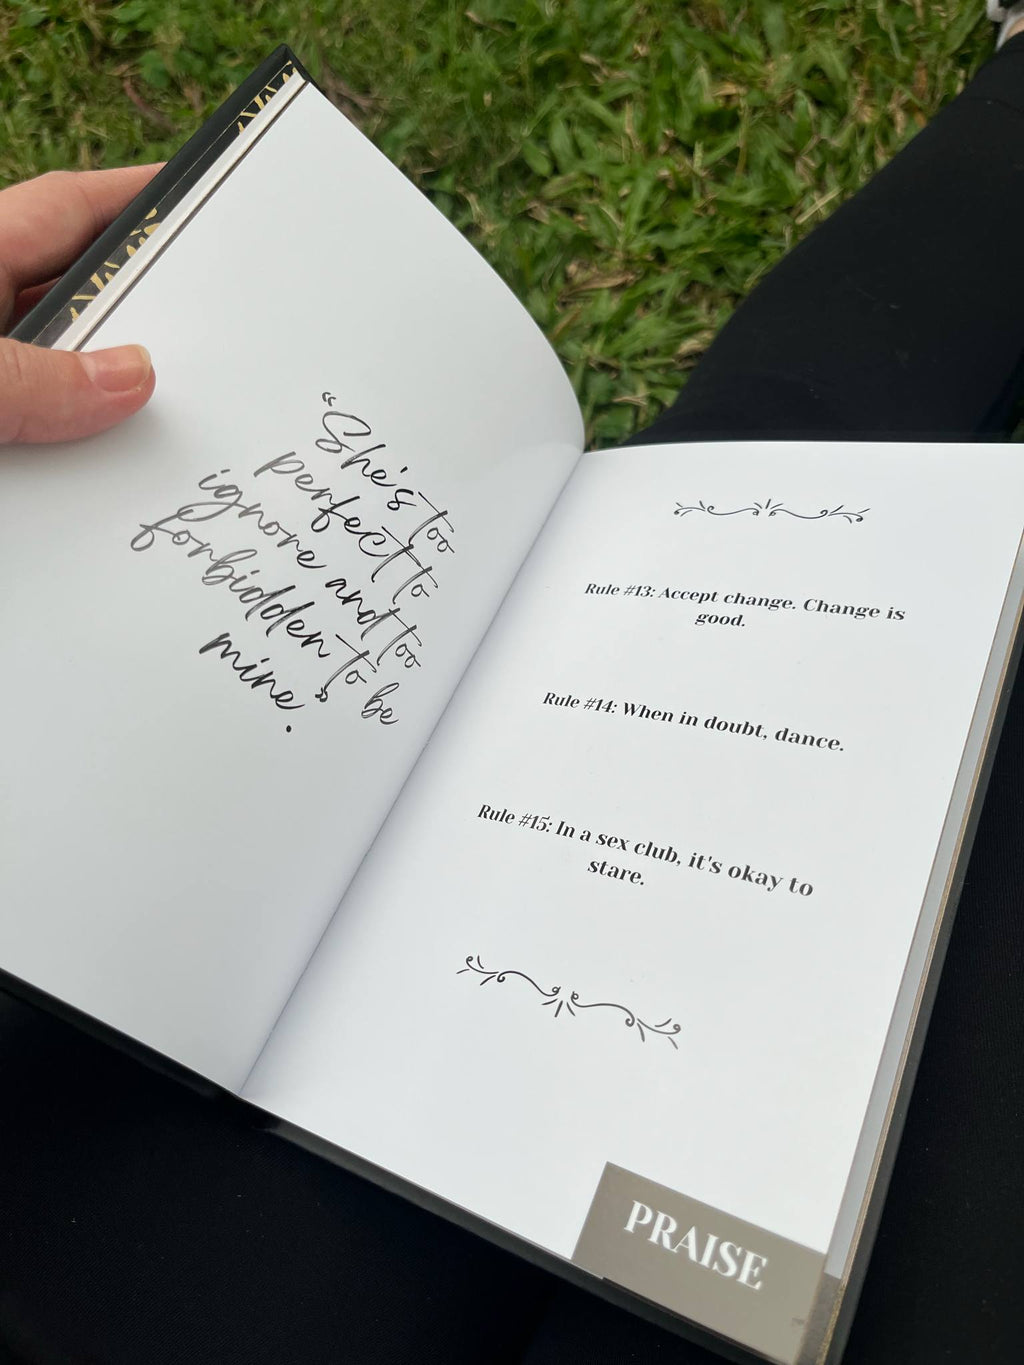 “She's too
perfect to
ignore and too
forbidden to be
mine.”
Rule #13: Accept change. Change is
good.
Rule #14: When in doubt, dance.
Rule #15: In a sex club, it's okay to
stare.
PRAISE